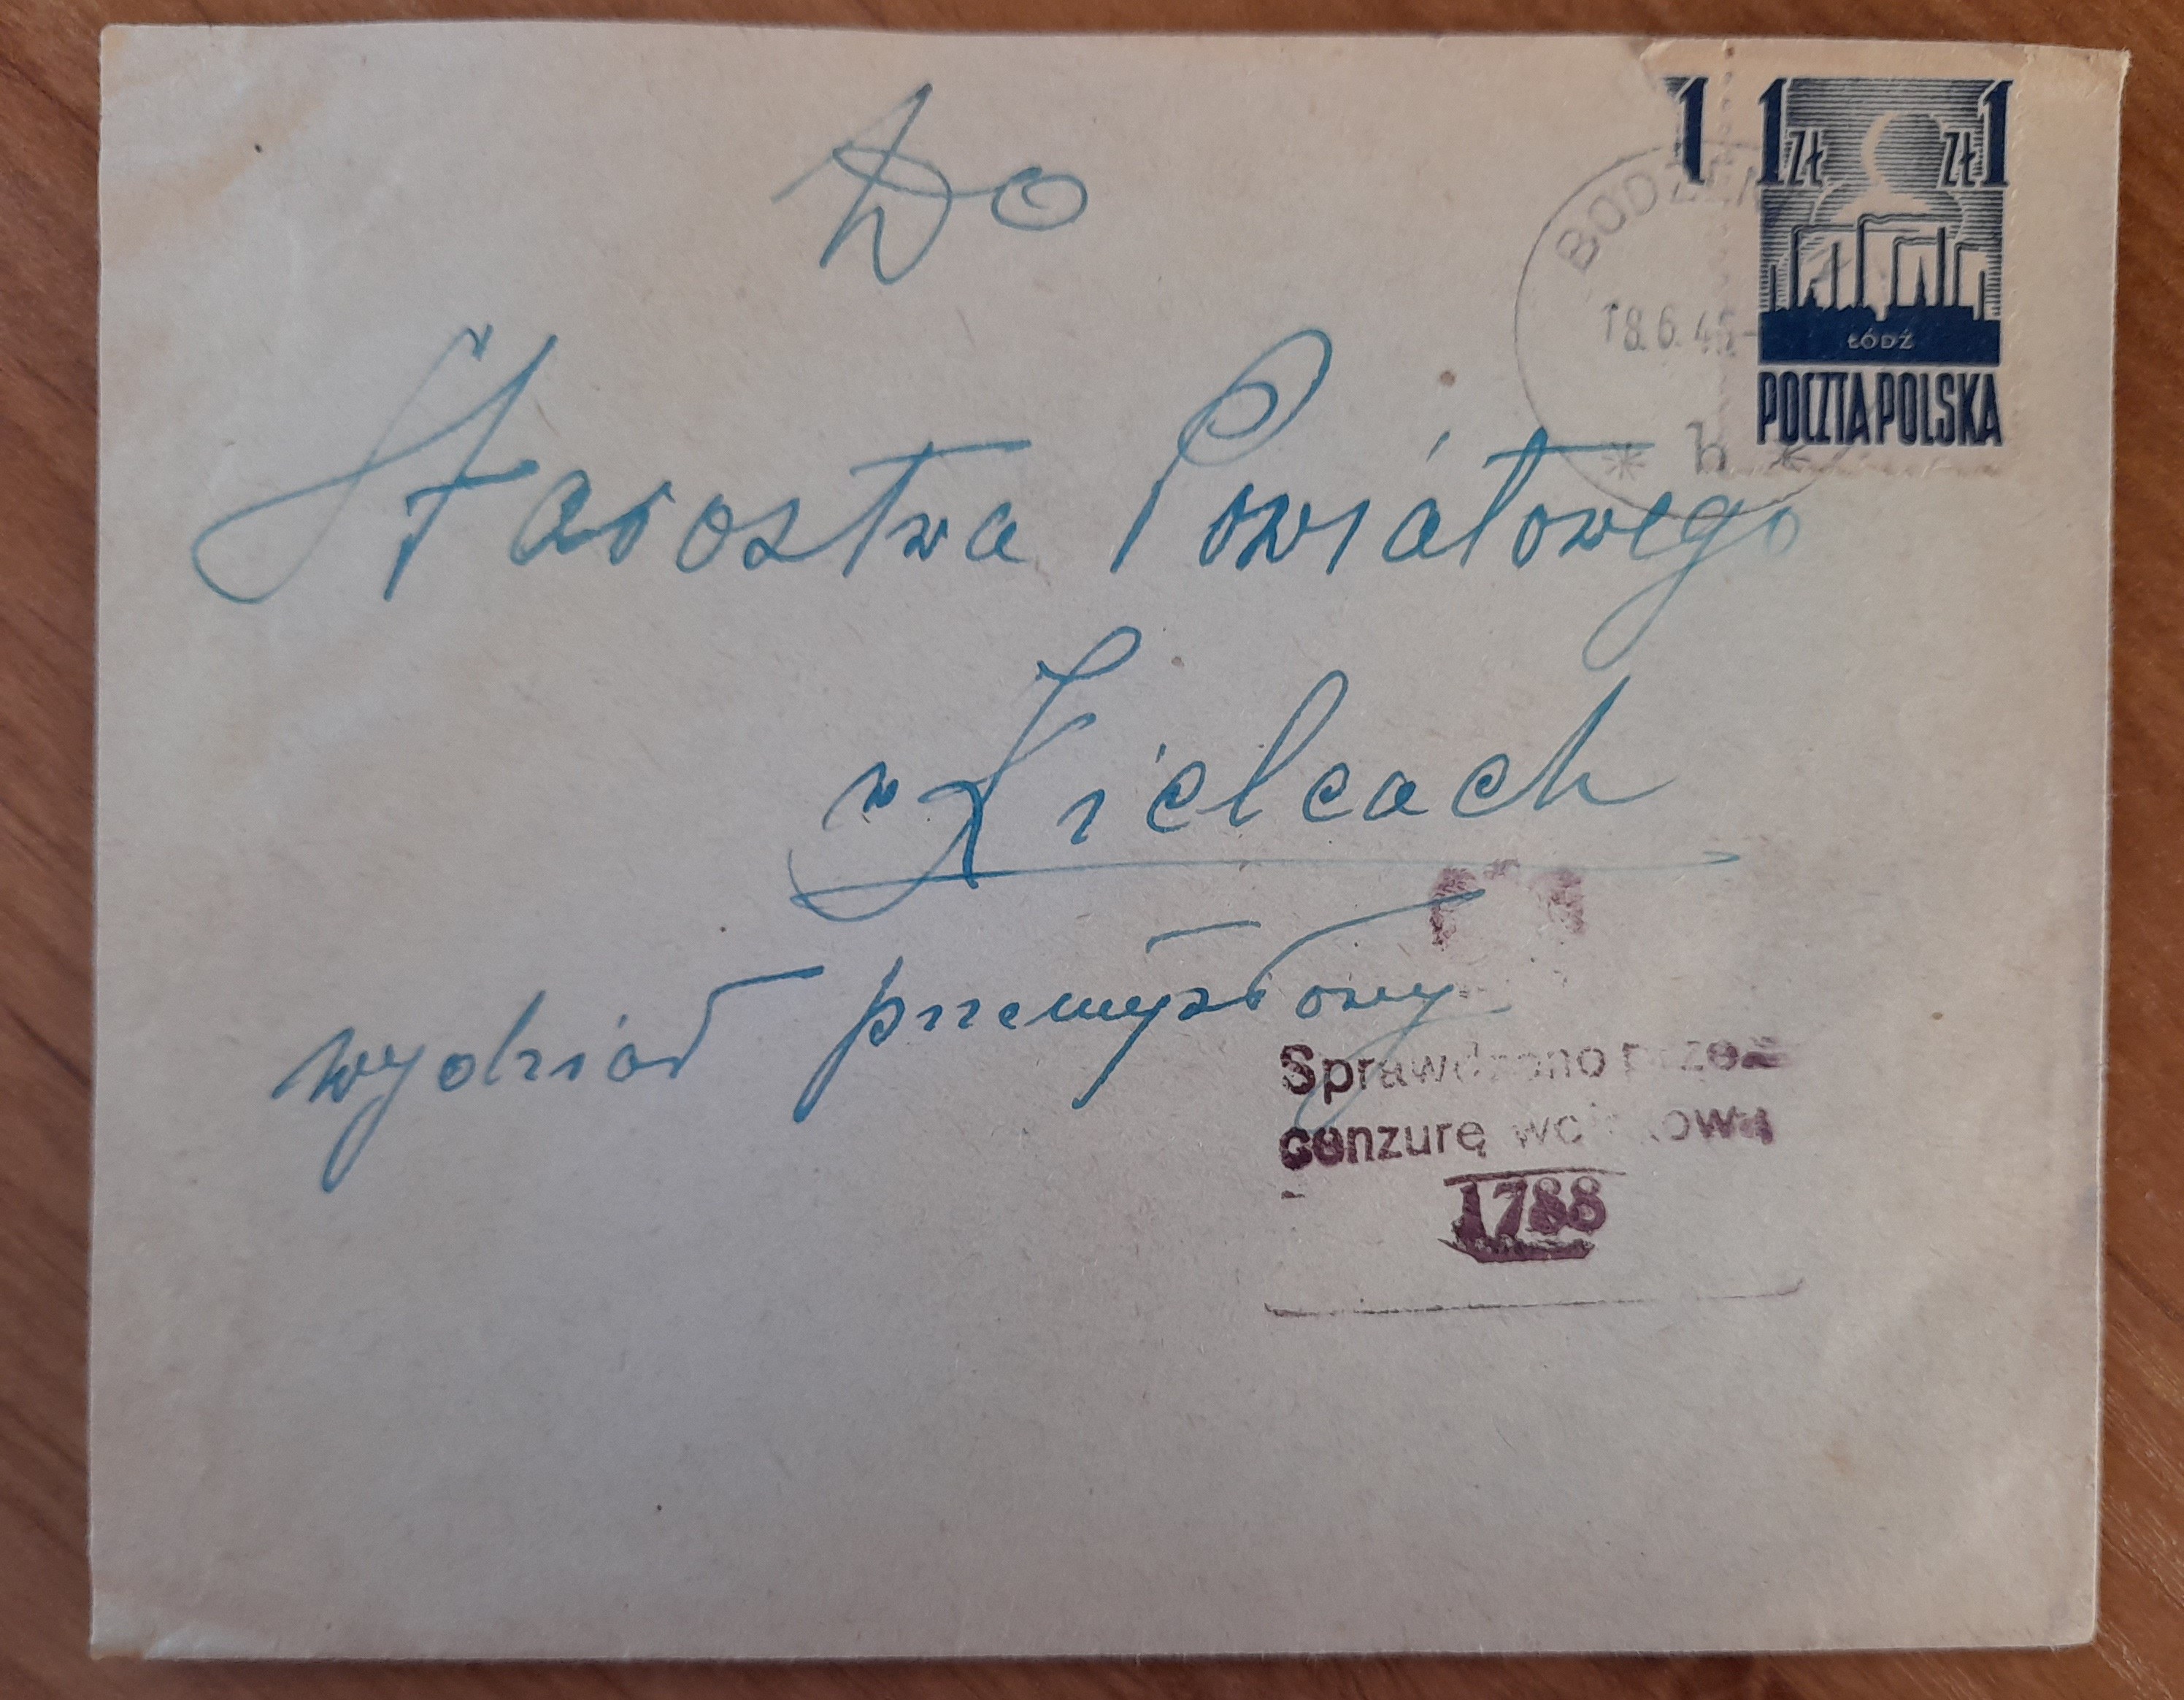 Do
Starostwa Powiátowego
w Kielcach
wydział przemysłowy
1 1 zł zł 1
ŁÓDŹ
POCZTA POLSKA
BODZEN
18.6.45-
* b *
Sprawdzono przez
cenzurę wojskową
1788